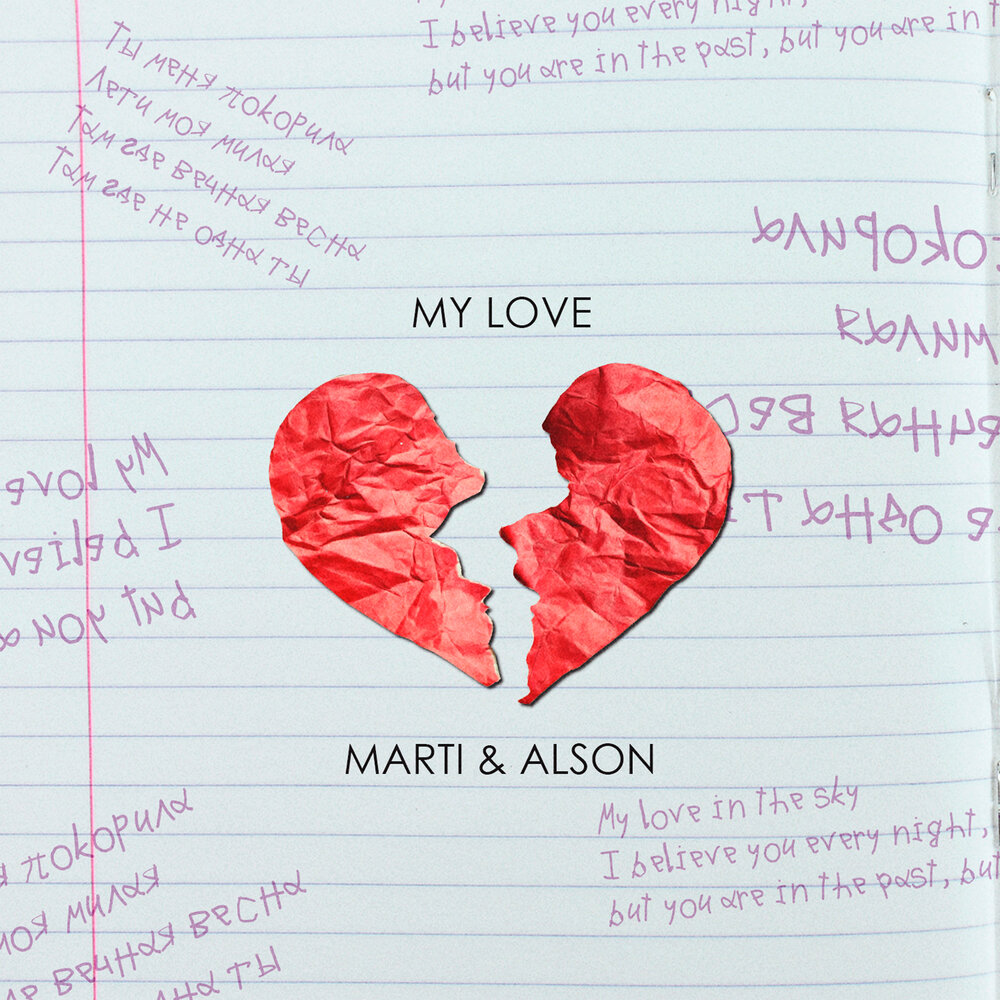 I believe you every night,
but you are in the past, but you are in t
Ты меня покорила
Лети моя милая
Там где вечная весна
Там где не одна ты
окорила
милая
ечная вес
е одна т
MY LOVE
My love
I believ
but you a
MARTI & ALSON
My love in the sky
I believe you every night,
but you are in the past, but
я покорила
моя милая
де вечная весна
дна ты